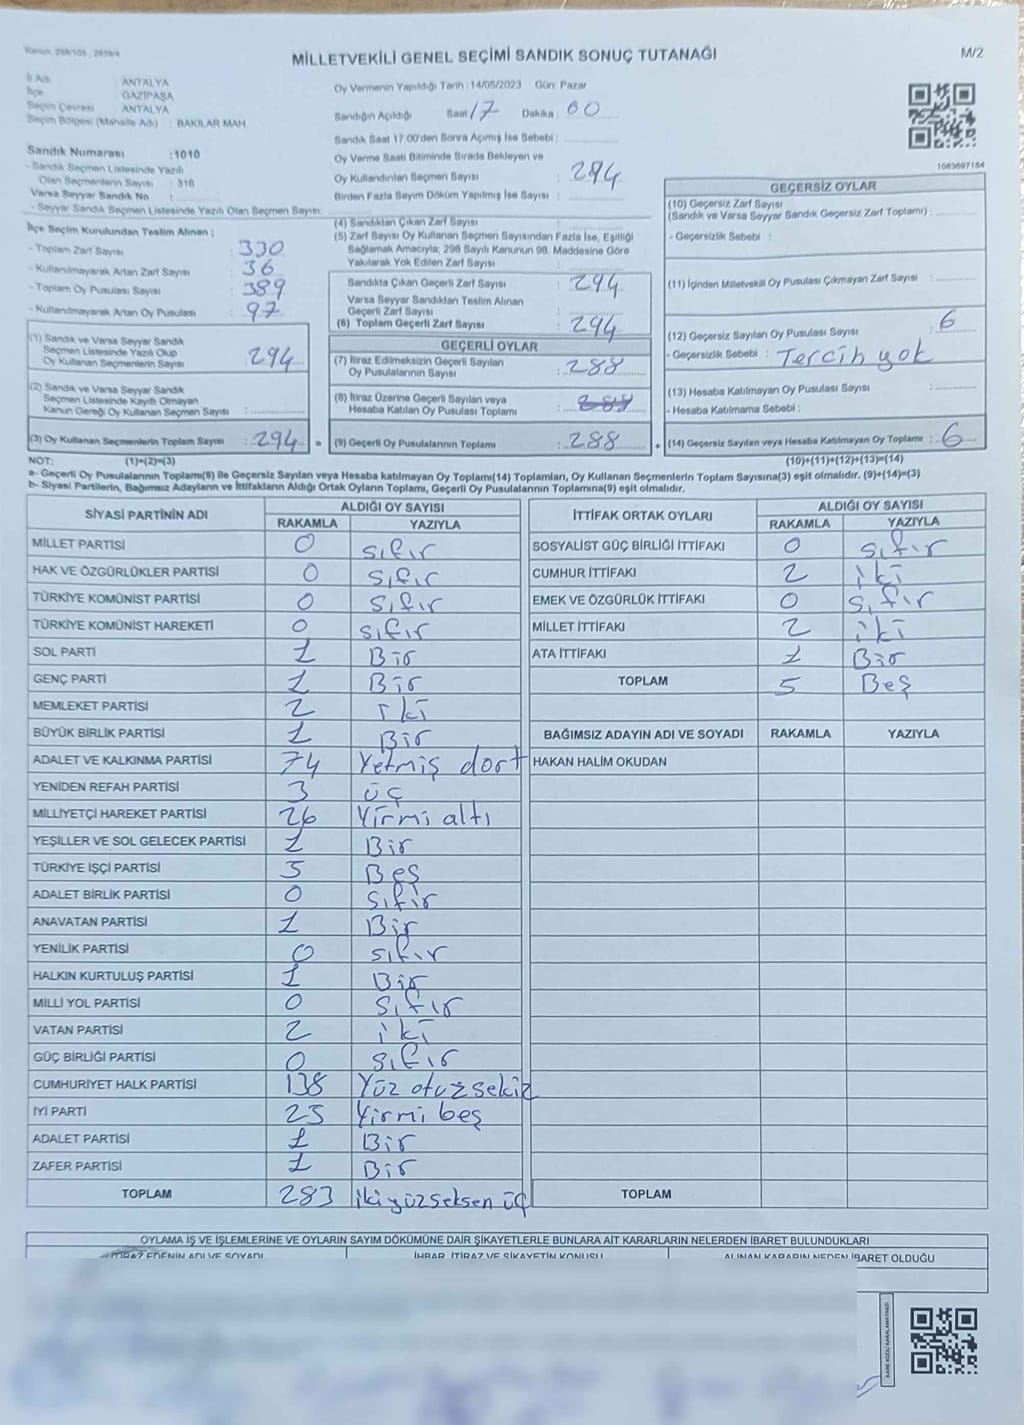 Kanun: 298/105 , 2839/4
MİLLETVEKİLİ GENEL SEÇİMİ SANDIK SONUÇ TUTANAĞI
M/2
İl Adı : ANTALYA
İlçe : GAZİPAŞA
Seçim Çevresi : ANTALYA
Seçim Bölgesi (Mahalle Adı) : BAKILAR MAH
Oy Vermenin Yapıldığı Tarih :14/05/2023 Gün: Pazar
Sandığın Açıldığı Saat 17 Dakika : 00
Sandık Saat 17.00'den Sonra Açımış İse Sebebi :
Oy Verme Saati Bitiminde Sırada Bekleyen ve
Oy Kullandırılan Seçmen Sayısı : 294
Birden Fazla Sayım Döküm Yapılmış İse Sayısı :
1083697184
Sandık Numarası :1010
- Sandık Seçmen Listesinde Yazılı
Olan Seçmenlerin Sayısı : 316
Varsa Seyyar Sandık No :
- Seyyar Sandık Seçmen Listesinde Yazılı Olan Seçmen Sayısı:
İlçe Seçim Kurulundan Teslim Alınan ;
- Toplam Zarf Sayısı : 330
- Kullanılmayarak Artan Zarf Sayısı : 36
- Toplam Oy Pusulası Sayısı : 389
- Kullanılmayarak Artan Oy Pusulası : 97
(1) Sandık ve Varsa Seyyar Sandık
Seçmen Listesinde Yazılı Olup
Oy Kullanan Seçmenlerin Sayısı : 294
(2) Sandık ve Varsa Seyyar Sandık
Seçmen Listesinde Kayıtlı Olmayan
Kanun Gereği Oy Kullanan Seçmen Sayısı :
(3) Oy Kullanan Seçmenlerin Toplam Sayısı : 294 =
(4) Sandıktan Çıkan Zarf Sayısı :
(5) Zarf Sayısı Oy Kullanan Seçmen Sayısından Fazla İse, Eşitliği
Sağlamak Amacıyla; 298 Sayılı Kanunun 98. Maddesine Göre
Yakılarak Yok Edilen Zarf Sayısı :
Sandıkta Çıkan Geçerli Zarf Sayısı : 294
Varsa Seyyar Sandıktan Teslim Alınan
Geçerli Zarf Sayısı :
(6) Toplam Geçerli Zarf Sayısı : 294
GEÇERLİ OYLAR
(7) İtiraz Edilmeksizin Geçerli Sayılan
Oy Pusulalarının Sayısı : 288
(8) İtiraz Üzerine Geçerli Sayılan veya
Hesaba Katılan Oy Pusulası Toplamı :
(9) Geçerli Oy Pusulalarının Toplamı : 288 +
GEÇERSİZ OYLAR
(10) Geçersiz Zarf Sayısı
(Sandık ve Varsa Seyyar Sandık Geçersiz Zarf Toplamı) :
- Geçersizlik Sebebi :
(11) İçinden Milletvekili Oy Pusulası Çıkmayan Zarf Sayısı :
(12) Geçersiz Sayılan Oy Pusulası Sayısı : 6
- Geçersizlik Sebebi : Tercih yok
(13) Hesaba Katılmayan Oy Pusulası Sayısı :
- Hesaba Katılmama Sebebi :
(14) Geçersiz Sayılan veya Hesaba Katılmayan Oy Toplamı : 6
NOT: (1)+(2)=(3) (10)+(11)+(12)+(13)=(14)
a- Geçerli Oy Pusulalarının Toplamı(9) ile Geçersiz Sayılan veya Hesaba katılmayan Oy Toplamı(14) Toplamları, Oy Kullanan Seçmenlerin Toplam Sayısına(3) eşit olmalıdır. (9)+(14)=(3)
b- Siyasi Partilerin, Bağımsız Adayların ve İttifakların Aldığı Ortak Oyların Toplamı, Geçerli Oy Pusulalarının Toplamına(9) eşit olmalıdır.
SİYASİ PARTİNİN ADI ALDIĞI OY SAYISI
RAKAMLA YAZIYLA
MİLLET PARTİSİ 0 sıfır
HAK VE ÖZGÜRLÜKLER PARTİSİ 0 sıfır
TÜRKİYE KOMÜNİST PARTİSİ 0 sıfır
TÜRKİYE KOMÜNİST HAREKETİ 0 sıfır
SOL PARTİ 1 Bir
GENÇ PARTİ 1 Bir
MEMLEKET PARTİSİ 2 iki
BÜYÜK BİRLİK PARTİSİ 1 Bir
ADALET VE KALKINMA PARTİSİ 74 Yetmiş dört
YENİDEN REFAH PARTİSİ 3 üç
MİLLİYETÇİ HAREKET PARTİSİ 26 Yirmi altı
YEŞİLLER VE SOL GELECEK PARTİSİ 1 Bir
TÜRKİYE İŞÇİ PARTİSİ 5 Beş
ADALET BİRLİK PARTİSİ 0 sıfır
ANAVATAN PARTİSİ 1 Bir
YENİLİK PARTİSİ 0 sıfır
HALKIN KURTULUŞ PARTİSİ 1 Bir
MİLLİ YOL PARTİSİ 0 sıfır
VATAN PARTİSİ 2 iki
GÜÇ BİRLİĞİ PARTİSİ 0 sıfır
CUMHURİYET HALK PARTİSİ 138 Yüz otuz sekiz
İYİ PARTİ 25 Yirmi beş
ADALET PARTİSİ 1 Bir
ZAFER PARTİSİ 1 Bir
TOPLAM 283 iki yüz seksen üç
İTTİFAK ORTAK OYLARI ALDIĞI OY SAYISI
RAKAMLA YAZIYLA
SOSYALİST GÜÇ BİRLİĞİ İTTİFAKI 0 sıfır
CUMHUR İTTİFAKI 2 iki
EMEK VE ÖZGÜRLÜK İTTİFAKI 0 sıfır
MİLLET İTTİFAKI 2 iki
ATA İTTİFAKI 1 Bir
TOPLAM 5 Beş
BAĞIMSIZ ADAYIN ADI VE SOYADI RAKAMLA YAZIYLA
HAKAN HALİM OKUDAN
TOPLAM
OYLAMA İŞ VE İŞLEMLERİNE VE OYLARIN SAYIM DÖKÜMÜNE DAİR ŞİKAYETLERLE BUNLARA AİT KARARLARIN NELERDEN İBARET BULUNDUKLARI
İTİRAZ EDENİN ADI VE SOYADI İHBAR, İTİRAZ VE ŞİKAYETİN KONUSU ALINAN KARARIN NEDEN İBARET OLDUĞU
KARE KODU KARALAMAYINIZ!